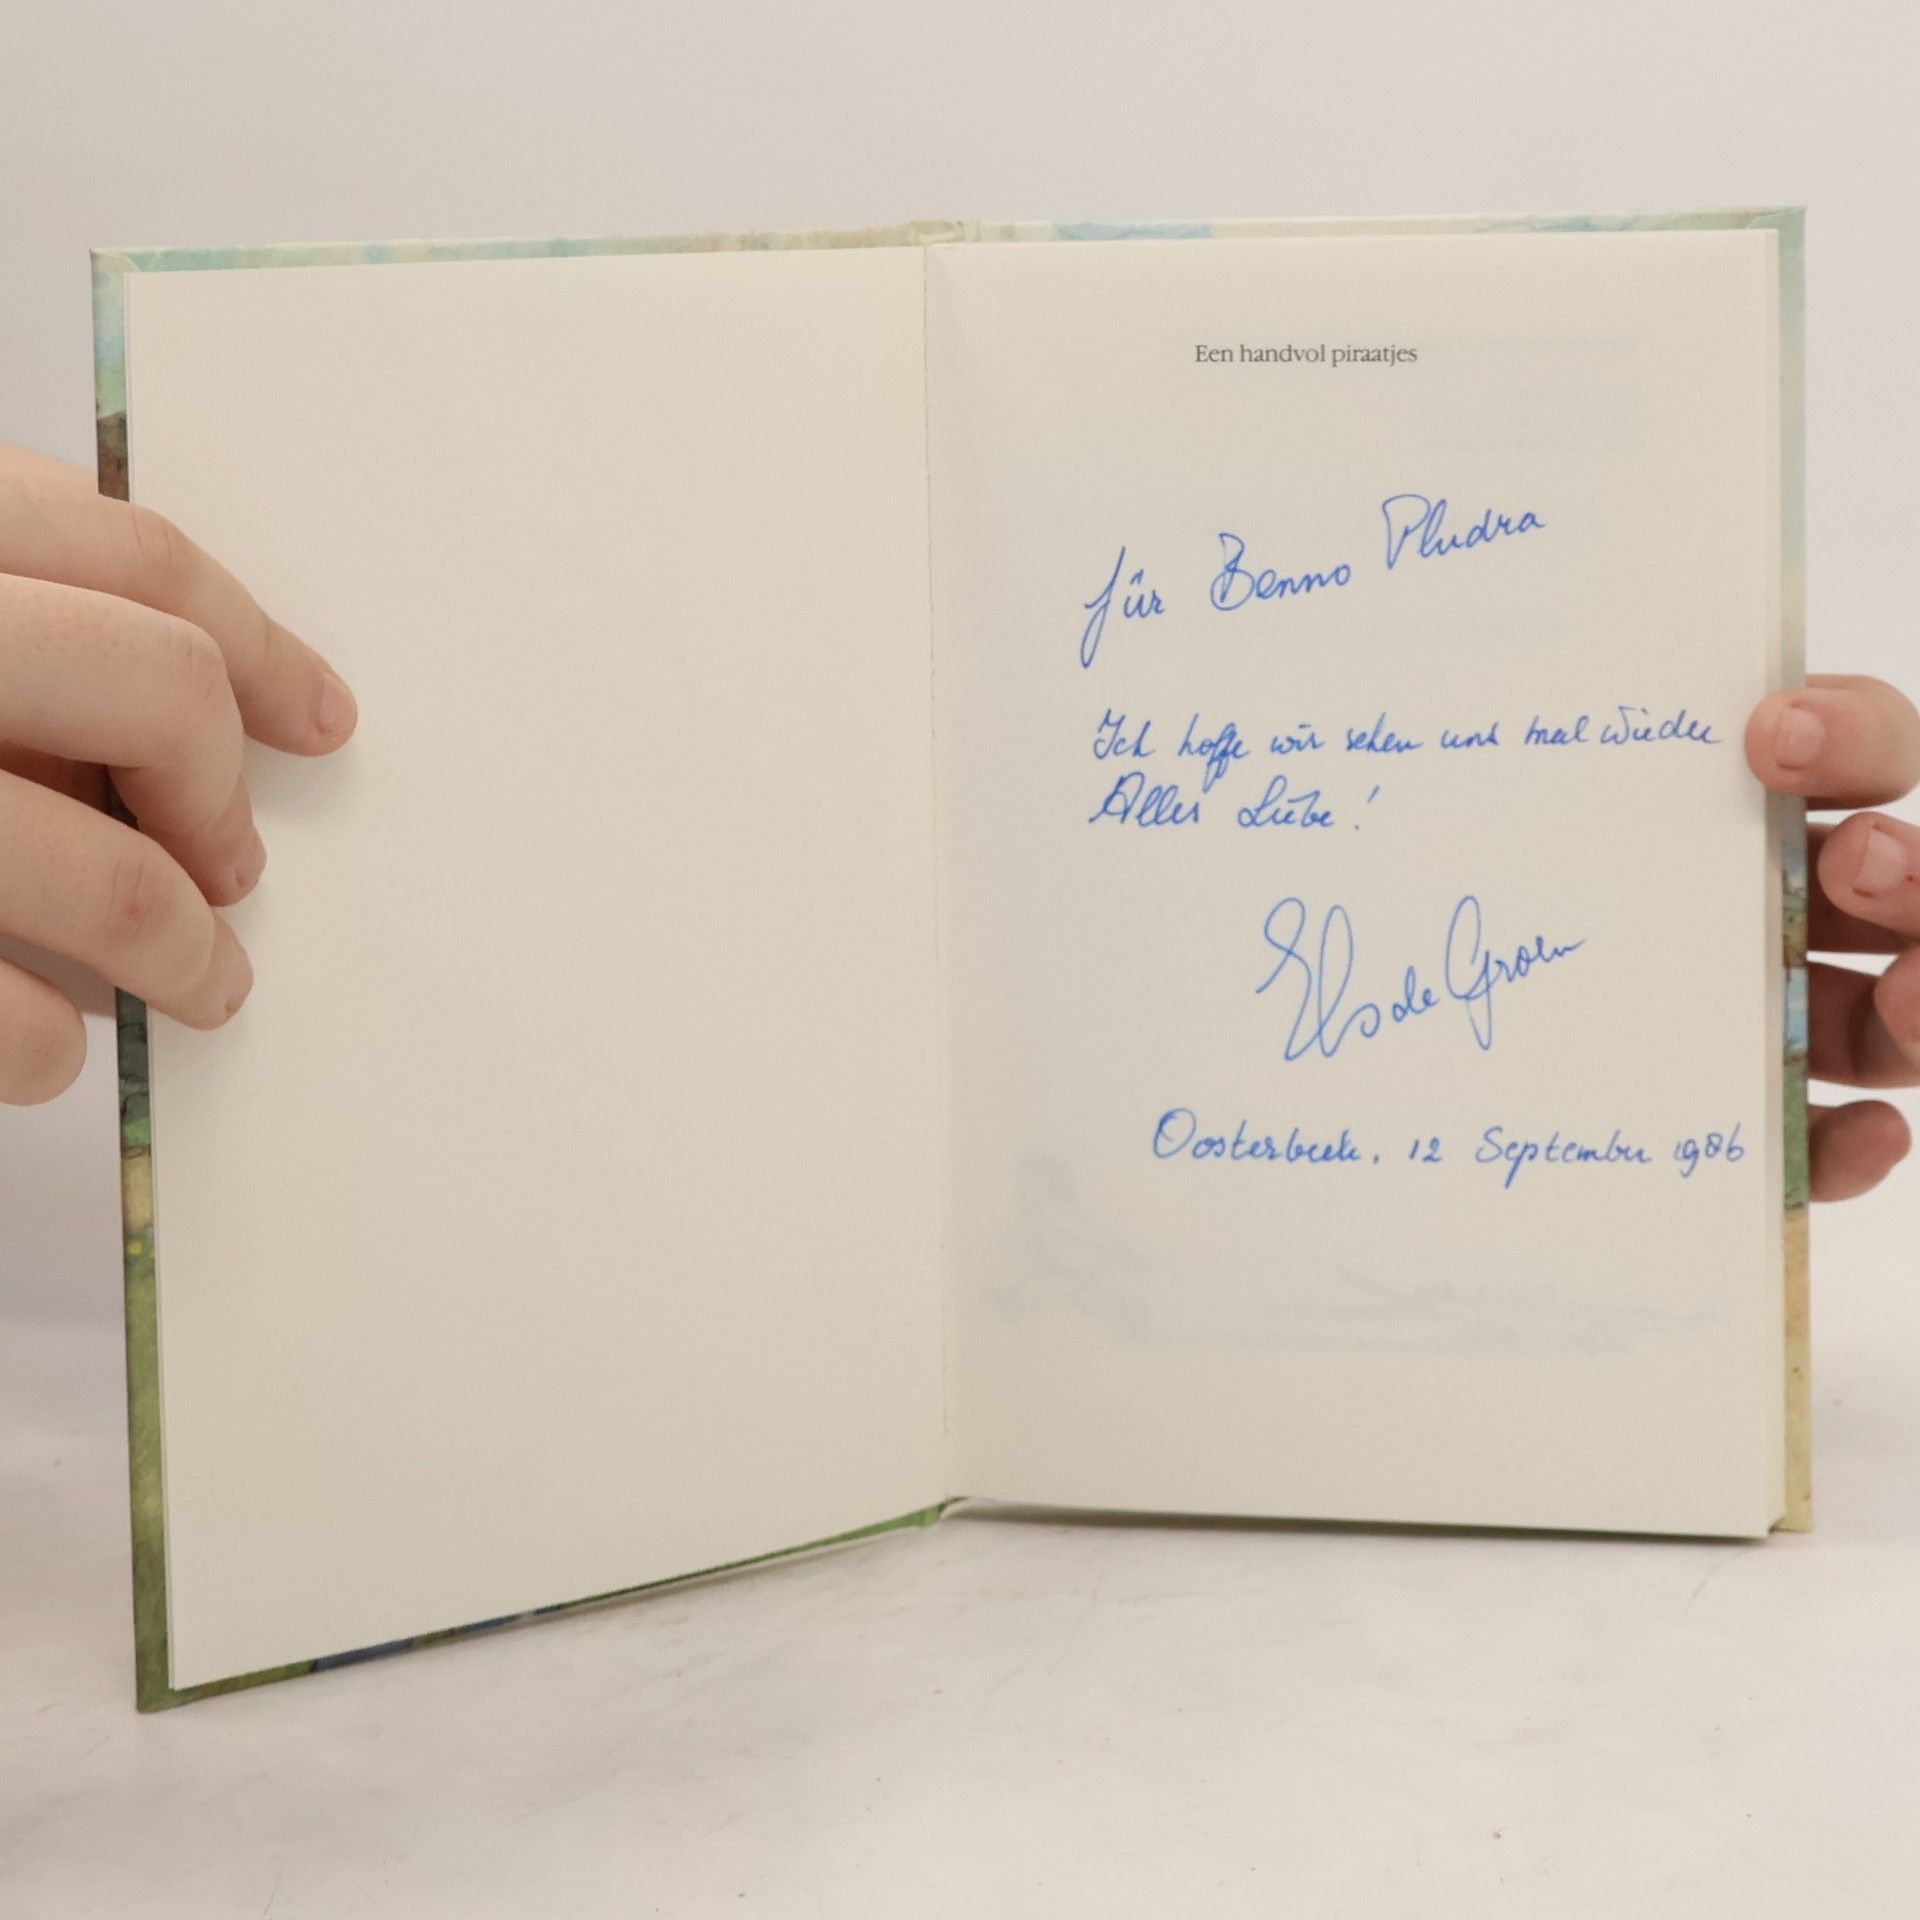 Een handvol piraatjes
für Benno Pludra
Ich hoffe wir sehen uns mal wieder
Alles Liebe!
Els de Groen
Oosterbeek, 12 September 1986